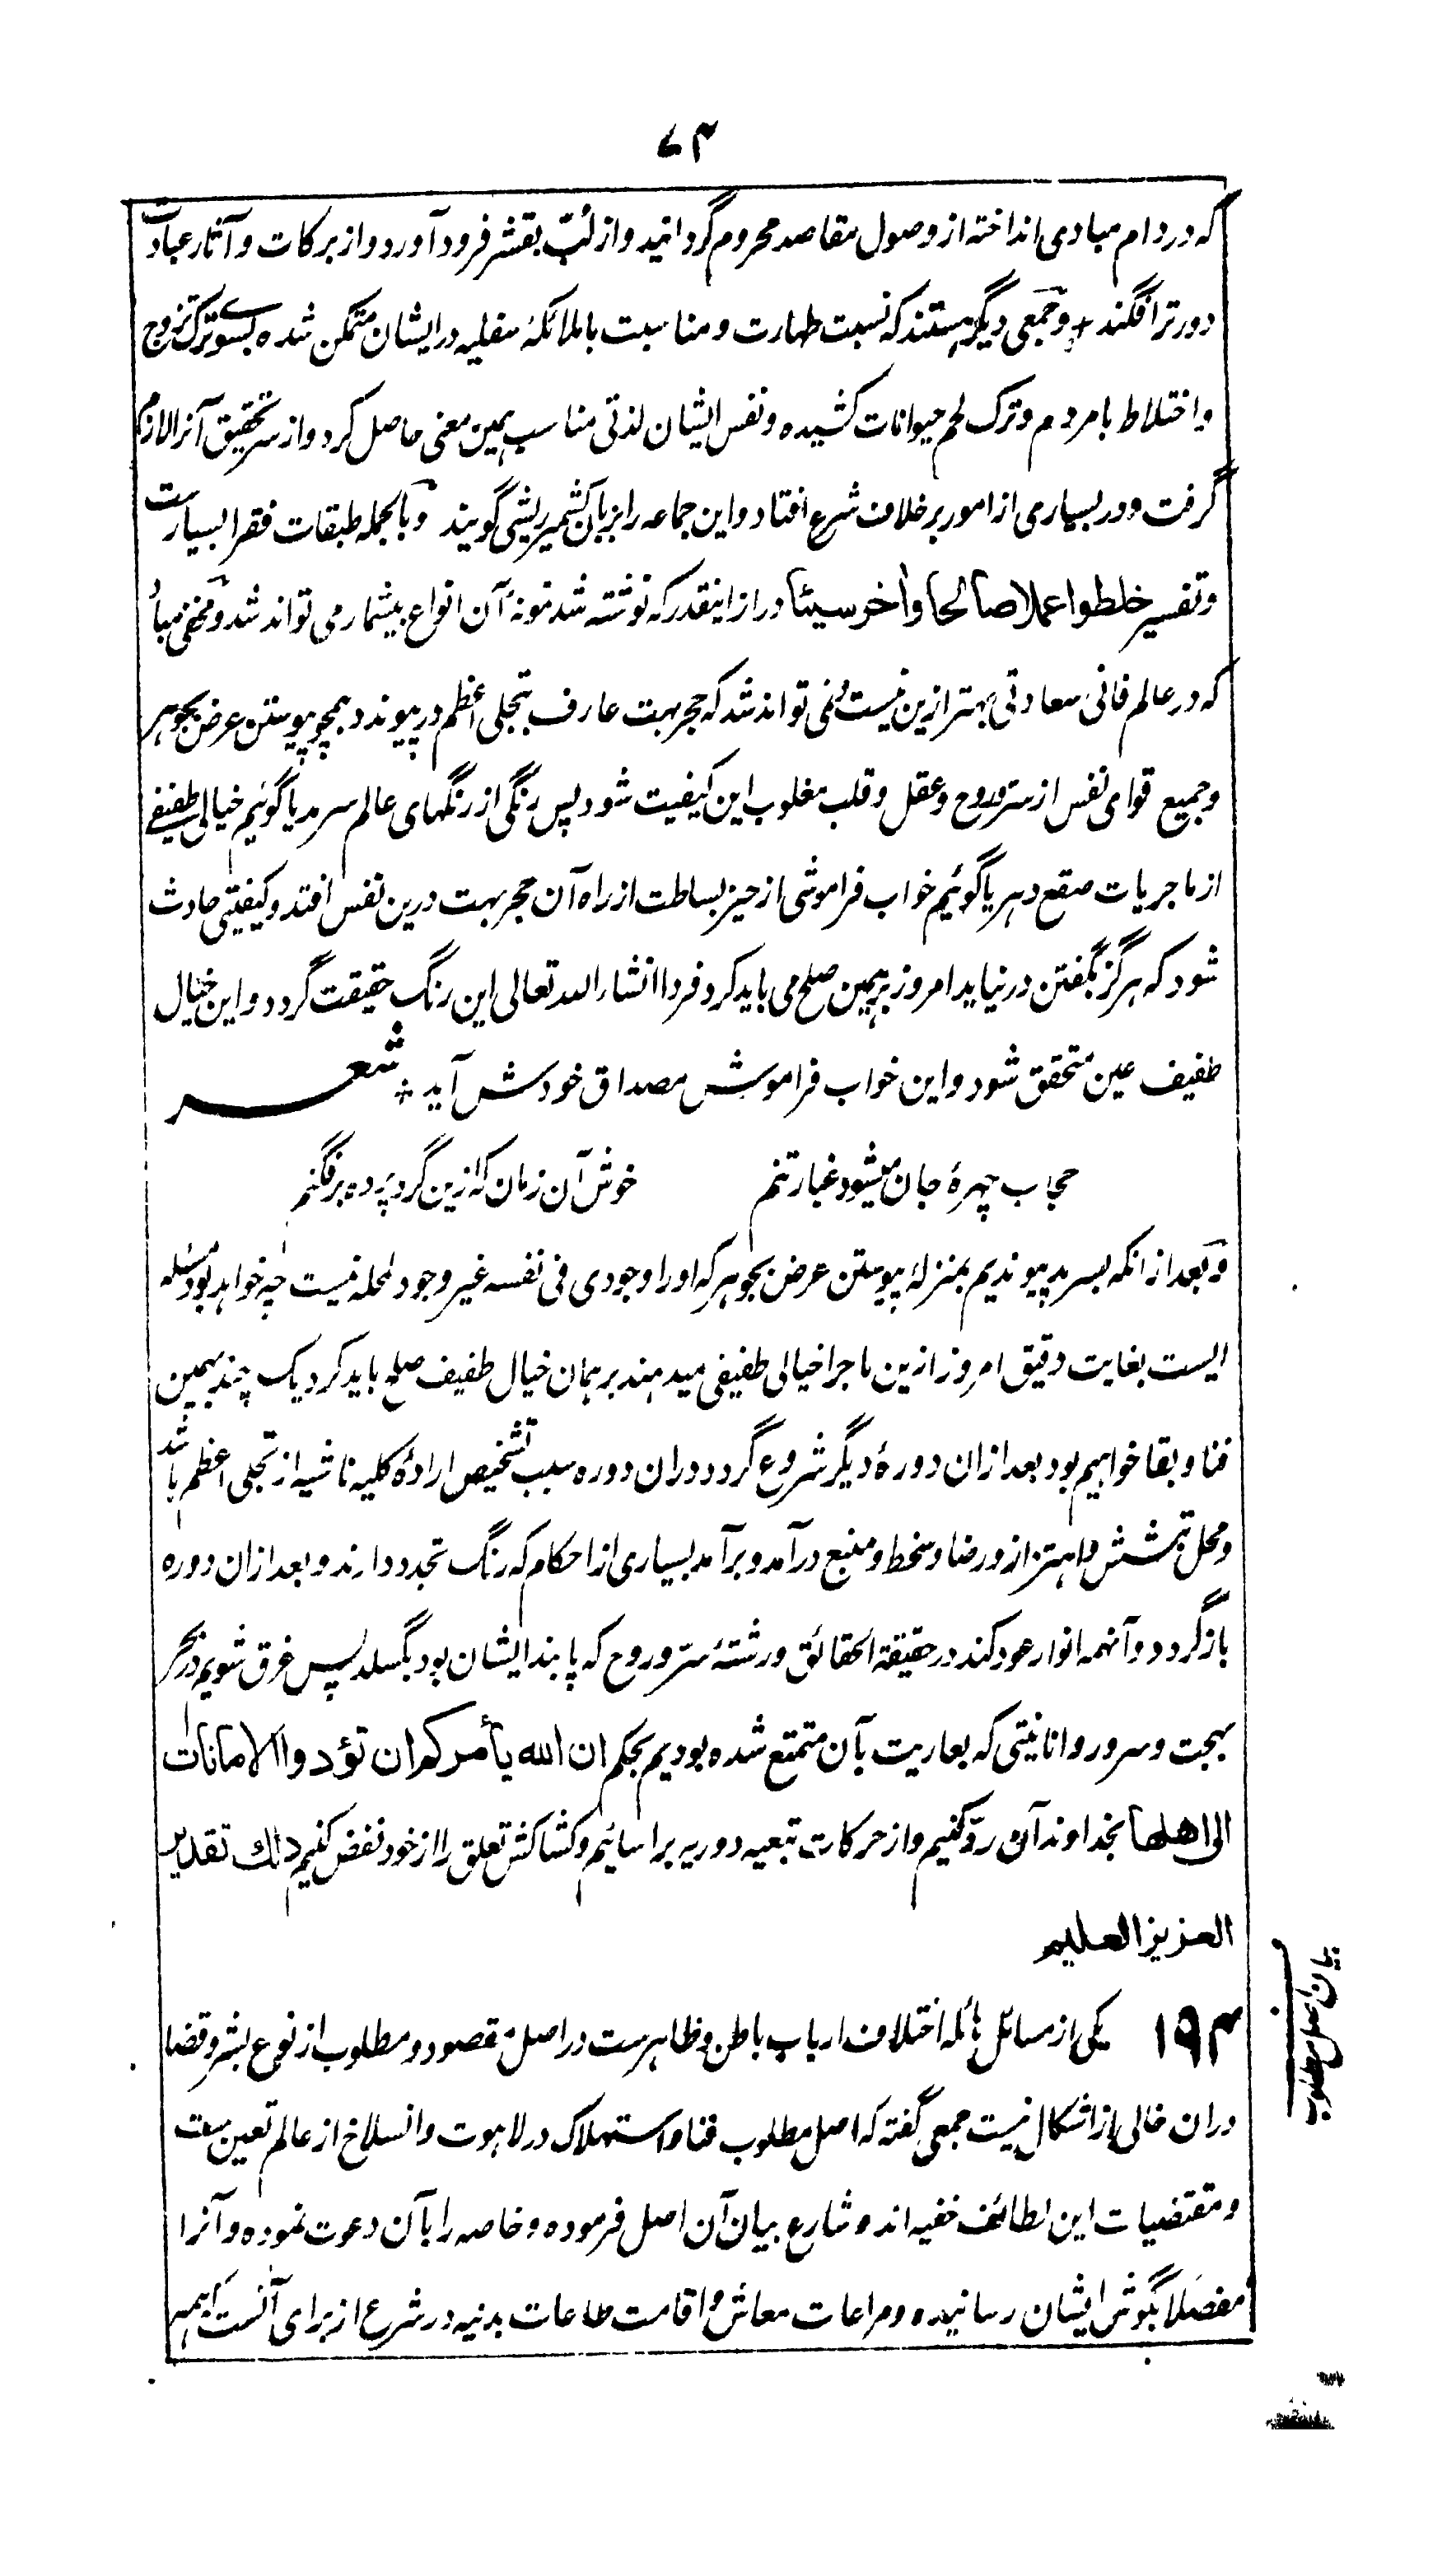 ۷۴
که در دام مبادی انداخته از وصول مقاصد محروم گردانید و از لُبّ بقشر فرود آورد و از برکات و آثار عبادت
دورتر افگند + و جمعی دیگر هستند که نسبت طهارت و مناسبت با ملائکۀ سفلیه در ایشان متمکن شده بسوی ترک تزوج
و اختلاط با مردم و ترک لحم حیوانات کشیده و نفس ایشان لذتی مناسب همین معنی حاصل کرد و از سر تحقیق آنرا لازم
گرفت و در بسیاری از امور بر خلاف شرع افتاد و این جماعه را بزبان کشمیر ریشی گویند و بالجمله طبقات فقرا بسیارست
و تفسیر خلطوا عملا صالحا وأخر سیئا دراز اینقدر که نوشته شد نمونۀ آن انواع بیشمار می تواند شد و مخفی مباد
که در عالم فانی سعادتی بهتر ازین نیست و نمی تواند شد که حجر بهت عارف بتجلی اعظم در پیوندد همچو پیوستن عرض بجوهر
و جمیع قوای نفس از سر و روح و عقل و قلب مغلوب این کیفیت شود پس رنگی از رنگهای عالم سرمد یا گوئیم خیالی طفیفی
از ماجریات صقع دهر یا گوئیم خواب فراموشی از حیز بساطت از راه آن حجر بهت درین نفس افتد و کیفیتی حادث
شود که هرگز بگفتن در نیاید امروز بر همین صلح می باید کرد فردا انشاء الله تعالی این رنگ حقیقت گردد و این خیال
طفیف عین متحقق شود و این خواب فراموش مصداق خودش آید + شعر
حجاب چهرۀ جان میشود غبار تنم خوش آن زمان که ازین گرد پرده برفگنم
و بعد از آنکه بسرمد پیوندیم بمنزلۀ پیوستن عرض بجوهر که او را وجودی فی نفسه غیر وجود لمحله نیست چه خواهد بود مسئله
ایست بغایت دقیق امروز ازین ماجرا خیالی طفیفی میدهند بر همان خیال طفیف صلح باید کرد یک چند بهمین
فنا و بقا خواهیم بود بعد ازان دورۀ دیگر شروع گردد دران دوره سبب تشخیص ارادۀ کلیه ناشیه از تجلی اعظم باشد
و محل تبشش و اهتزاز و رضا و سخط و منبع درآمد و برآمد بسیاری از احکام که رنگ تجدد دارند و بعد ازان دوره
بازگردد و آنهمه انوار عود کند در حقیقة الحقائق و رشتۀ سرّ و روح که پابند ایشان بود بگسلد پس غرق شویم در بحر
بهجت و سرور و انانیتی که بعاریت بآن متمتع شده بودیم بحکم ان الله یأمرکم ان تؤدوا الامانات
الی اهلها بخداوند آن ردّ کنیم و از حرکات تبعیه دوریه برآسائیم و کشاکش تعلق را از خود نفض کنیم ذلك تقدیر
العزیز العلیم
۱۹۴ یکی از مسائل هائله اختلاف ارباب باطن و ظاهرست در اصل مقصود و مطلوب از نوع بشر و قضا
دران خالی از اشکال نیست جمعی گفته که اصل مطلوب فنا و استهلاک در لاهوت و انسلاخ از عالم تعین ست
و مقتضیات این لطائف خفیه اند و شارع بیان آن اصل فرموده و خاصه را بآن دعوت نموده و آنرا
مفصلاً بگوش ایشان رسانیده و مراعات معاش و اقامت طاعات بدنیه در شرع از برای آنست که همه
بیان اصل مطلوب